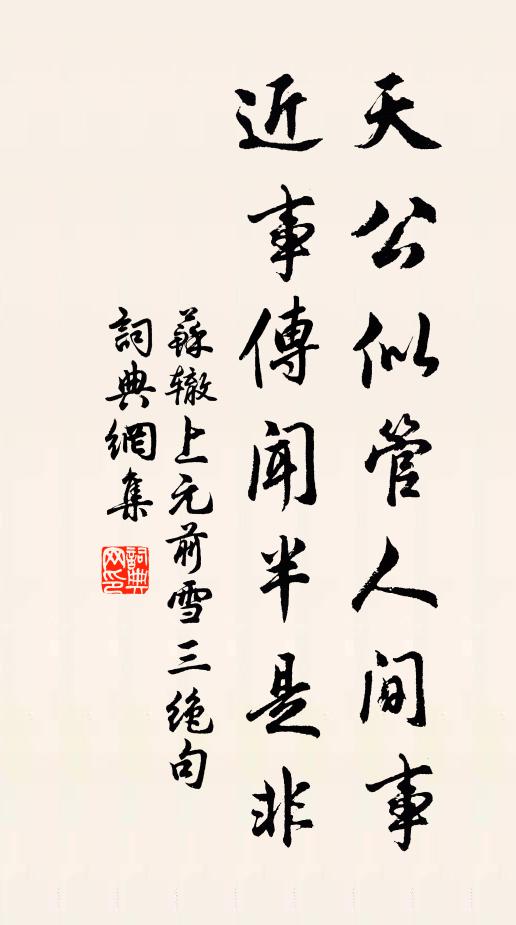 天公似管人間事
近事傳聞半是非
蘇辙上元前雪三絶句
詞典網集
詞典网印